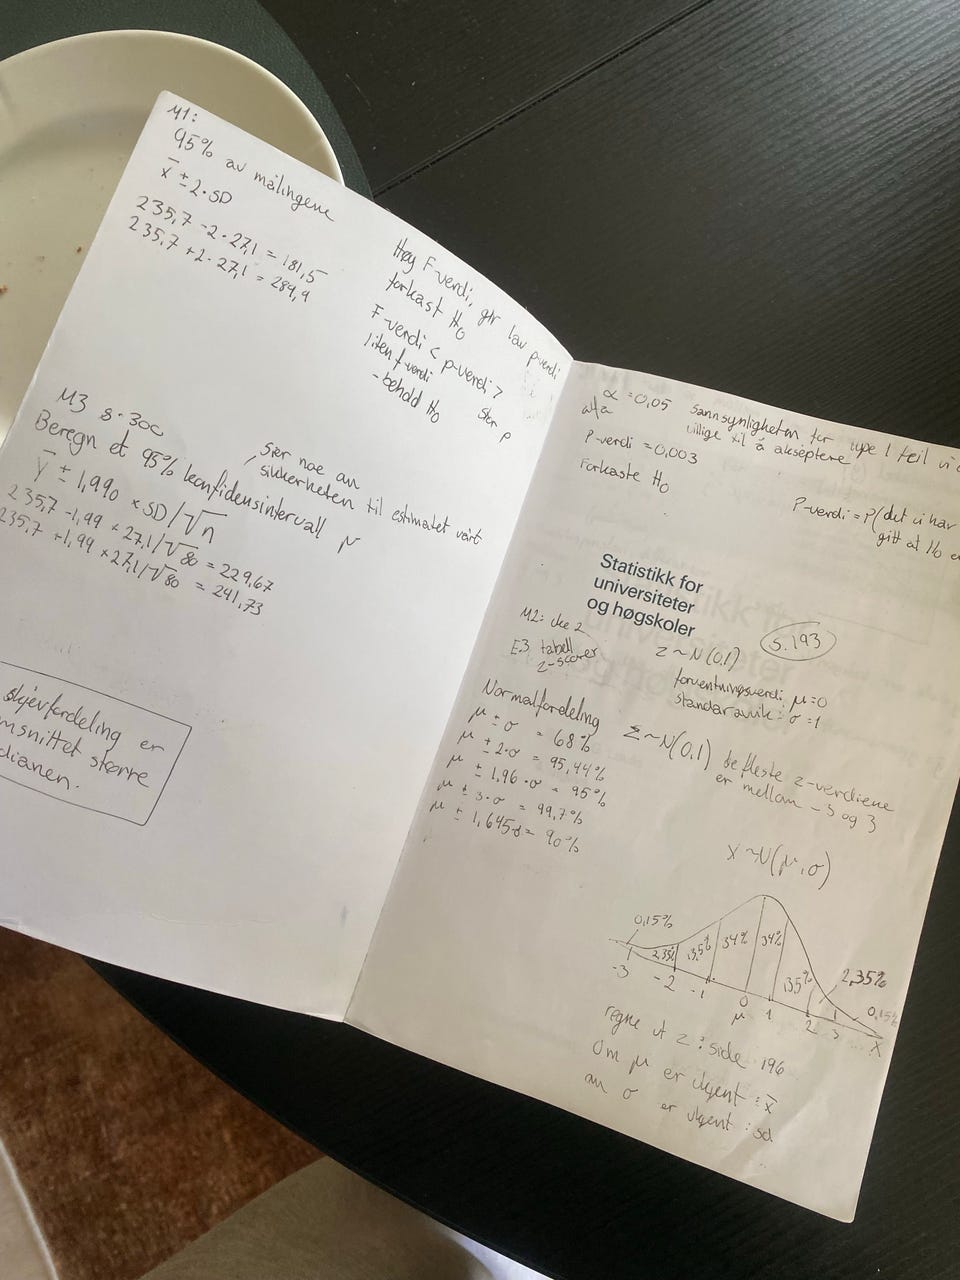 M1:
95% av målingene
x̄ ± 2·SD
235,7 -2·27,1 = 181,5
235,7 +2·27,1 = 289,9
Høy F-verdi, gir lav p-verdi
forkast H₀
F-verdi < p-verdi >
liten f-verdi
stor p
- behold H₀
M3 8.30c
Beregn et 95% konfidensintervall μ
Sier noe om
sikkerheten til estimatet vårt
ȳ ± 1,990 × SD/√n
235,7 -1,99 × 27,1/√80 = 229,67
235,7 +1,99 × 27,1/√80 = 241,73
skjevfordeling er
snittet større
dianen.
α = 0,05 sannsynligheten for type 1 feil vi
alfa villige til å akseptere
P-verdi = 0,003
Forkaste H₀
P-verdi = P(det vi har
gitt at H₀
Statistikk for
universiteter
og høgskoler
M2: uke 2
E.3 tabell
z-scorer
Z~N(0,1)
s.193
forventningsverdi: μ=0
standaravik: σ=1
Normalfordeling
μ ± σ = 68%
μ ± 2·σ = 95,44%
μ ± 1,96·σ = 95%
μ ± 3·σ = 99,7%
μ ± 1,645·σ = 90%
Z~N(0,1) de fleste z-verdiene
er mellom -3 og 3
X~N(μ,σ)
0,15%
2,35% 13,5% 34% 34% 13,5% 2,35% 0,15%
-3 -2 -1 0 1 2 3 X
μ
regne ut z : side 196
Om μ er ukjent : x̄
om σ er ukjent : sd